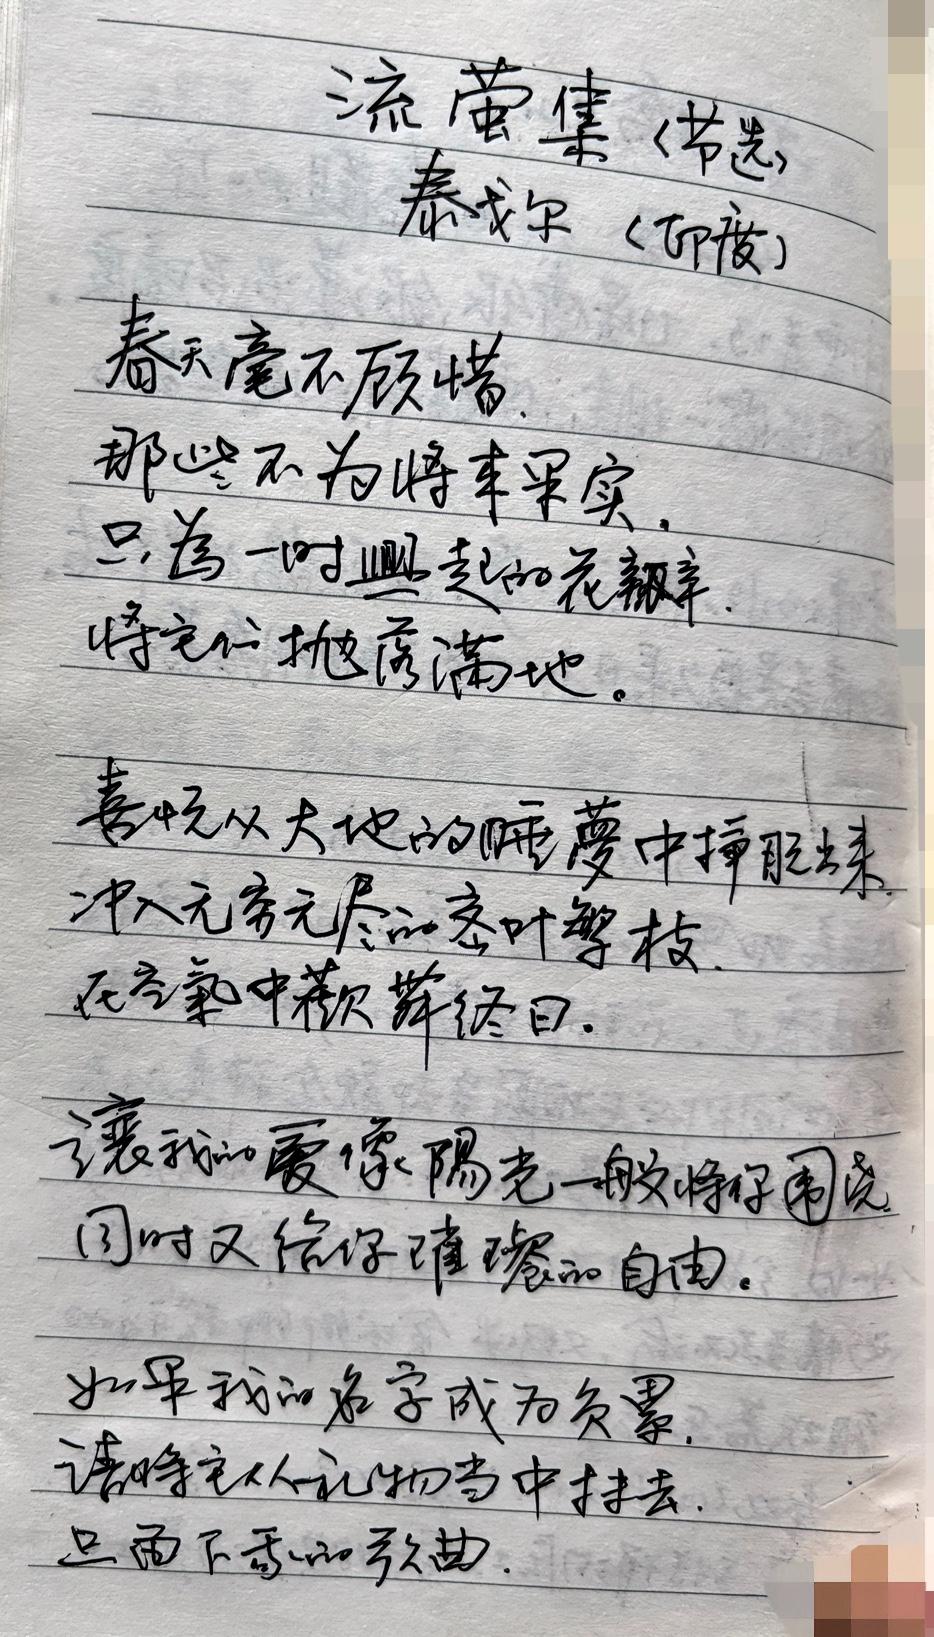 流萤集（节选）
泰戈尔（印度）
春天毫不顾惜.
那些不为将来果实.
只為一时興起的花瓣.
将它们抛落满地。
喜悦从大地的睡夢中挣脱出来.
冲入无穷无尽的密叶繁枝.
在空氣中歡舞终日.
讓我的爱像陽光一般将你围绕.
同时又给你璀璨的自由。
如果我的名字成为负累.
请将它从礼物当中抹去.
只留下我的歌曲.